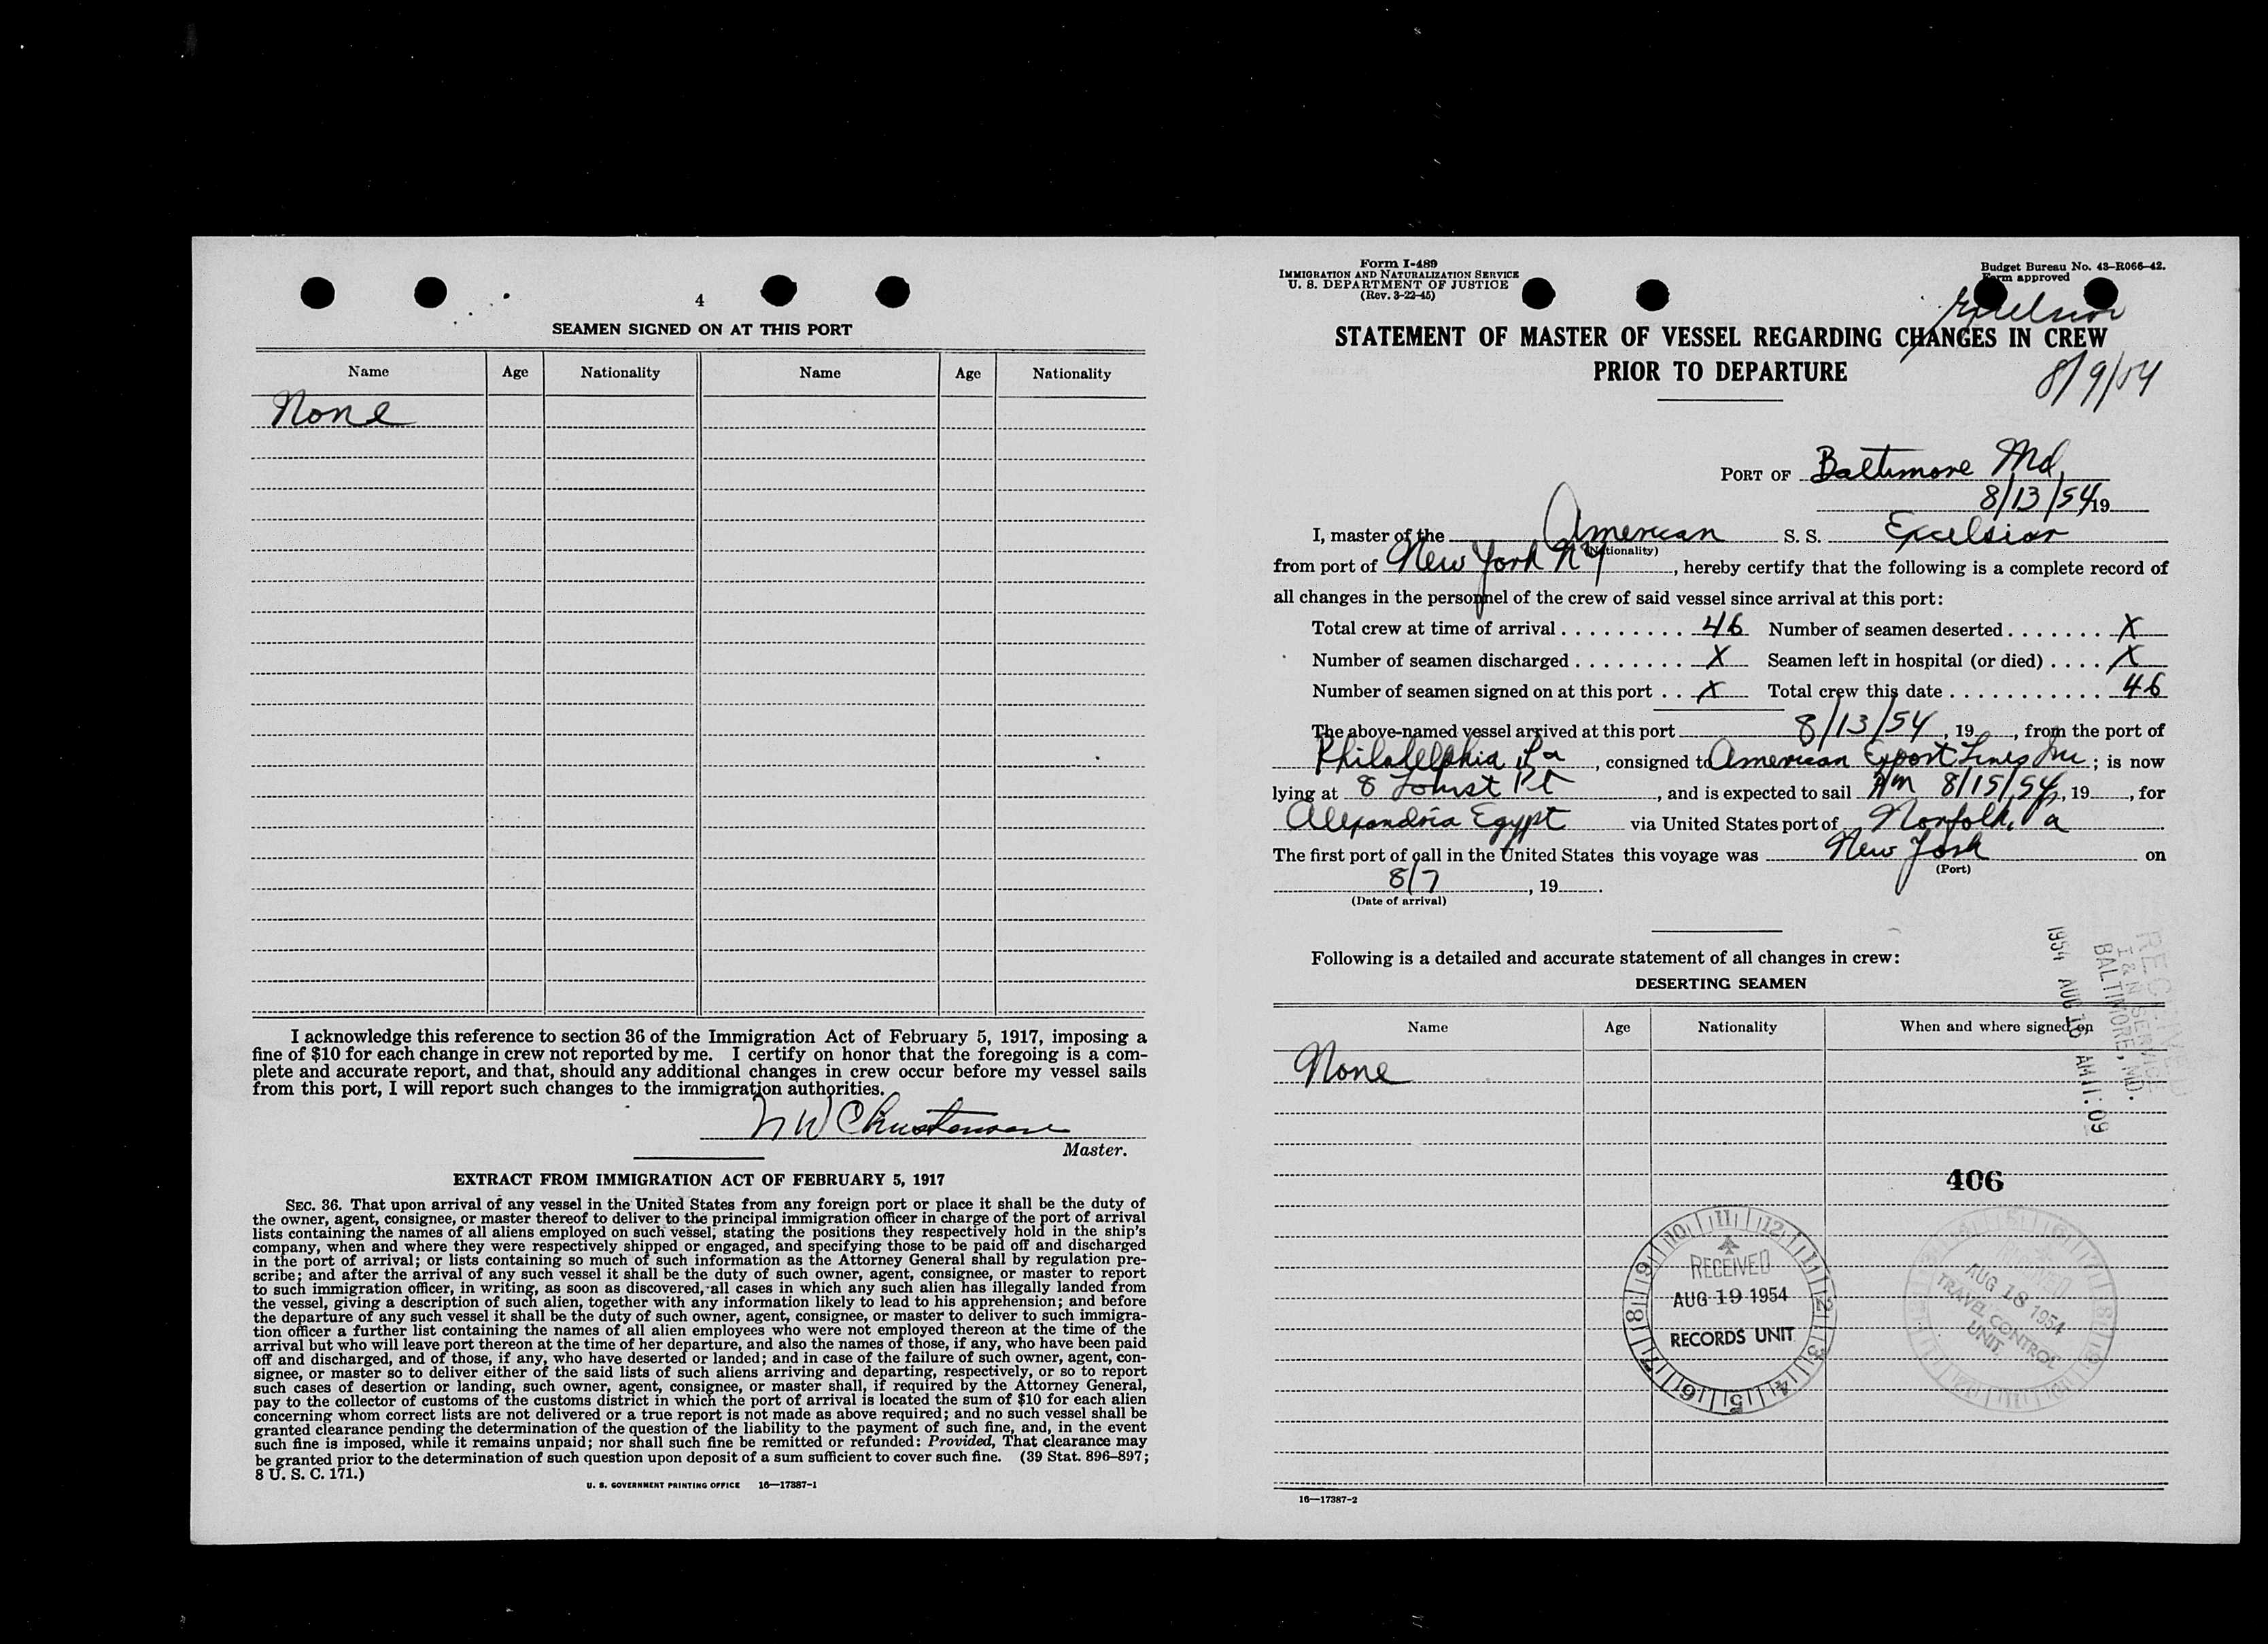 4
SEAMEN SIGNED ON AT THIS PORT
Name Age Nationality Name Age Nationality
None
I acknowledge this reference to section 36 of the Immigration Act of February 5, 1917, imposing a
fine of $10 for each change in crew not reported by me. I certify on honor that the foregoing is a com-
plete and accurate report, and that, should any additional changes in crew occur before my vessel sails
from this port, I will report such changes to the immigration authorities.
Master.
EXTRACT FROM IMMIGRATION ACT OF FEBRUARY 5, 1917
SEC. 36. That upon arrival of any vessel in the United States from any foreign port or place it shall be the duty of
the owner, agent, consignee, or master thereof to deliver to the principal immigration officer in charge of the port of arrival
lists containing the names of all aliens employed on such vessel, stating the positions they respectively hold in the ship's
company, when and where they were respectively shipped or engaged, and specifying those to be paid off and discharged
in the port of arrival; or lists containing so much of such information as the Attorney General shall by regulation pre-
scribe; and after the arrival of any such vessel it shall be the duty of such owner, agent, consignee, or master to report
to such immigration officer, in writing, as soon as discovered, all cases in which any such alien has illegally landed from
the vessel, giving a description of such alien, together with any information likely to lead to his apprehension; and before
the departure of any such vessel it shall be the duty of such owner, agent, consignee, or master to deliver to such immigra-
tion officer a further list containing the names of all alien employees who were not employed thereon at the time of the
arrival but who will leave port thereon at the time of her departure, and also the names of those, if any, who have been paid
off and discharged, and of those, if any, who have deserted or landed; and in case of the failure of such owner, agent, con-
signee, or master so to deliver either of the said lists of such aliens arriving and departing, respectively, or so to report
such cases of desertion or landing, such owner, agent, consignee, or master shall, if required by the Attorney General,
pay to the collector of customs of the customs district in which the port of arrival is located the sum of $10 for each alien
concerning whom correct lists are not delivered or a true report is not made as above required; and no such vessel shall be
granted clearance pending the determination of the question of the liability to the payment of such fine, and, in the event
such fine is imposed, while it remains unpaid; nor shall such fine be remitted or refunded: Provided, That clearance may
be granted prior to the determination of such question upon deposit of a sum sufficient to cover such fine. (39 Stat. 896–897;
8 U. S. C. 171.)
U. S. GOVERNMENT PRINTING OFFICE 16—17387-1
Form I-489
IMMIGRATION AND NATURALIZATION SERVICE
U. S. DEPARTMENT OF JUSTICE
(Rev. 3-22-45)
Budget Bureau No. 43–R066–42.
Form approved
Excelsior
STATEMENT OF MASTER OF VESSEL REGARDING CHANGES IN CREW
PRIOR TO DEPARTURE
8/9/54
PORT OF Baltimore Md
8/13/54 19
I, master of the American S. S. Excelsior
(Nationality)
from port of New York NY, hereby certify that the following is a complete record of
all changes in the personnel of the crew of said vessel since arrival at this port:
Total crew at time of arrival 46 Number of seamen deserted X
Number of seamen discharged X Seamen left in hospital (or died) X
Number of seamen signed on at this port X Total crew this date 46
The above-named vessel arrived at this port 8/13/54, 19, from the port of
Philadelphia Pa, consigned to American Export Lines Inc; is now
lying at 8 Locust Pt, and is expected to sail AM 8/15/54, 19, for
Alexandria Egypt via United States port of Norfolk, Va.
The first port of call in the United States this voyage was New York on
(Port)
8/7, 19.
(Date of arrival)
Following is a detailed and accurate statement of all changes in crew:
DESERTING SEAMEN
Name Age Nationality When and where signed on
None
RECEIVED
I & N SERVICE
BALTIMORE, MD.
1954 AUG 16 AM 11:09
406
RECEIVED
AUG 19 1954
RECORDS UNIT
AUG 18 1954
TRAVEL CONTROL
UNIT.
16—17387-2